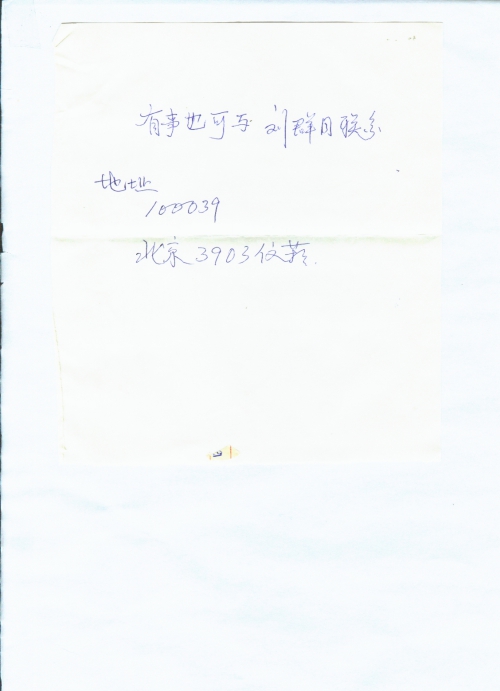 有事也可与 刘群同联系
地址
100039
北京3903信箱.